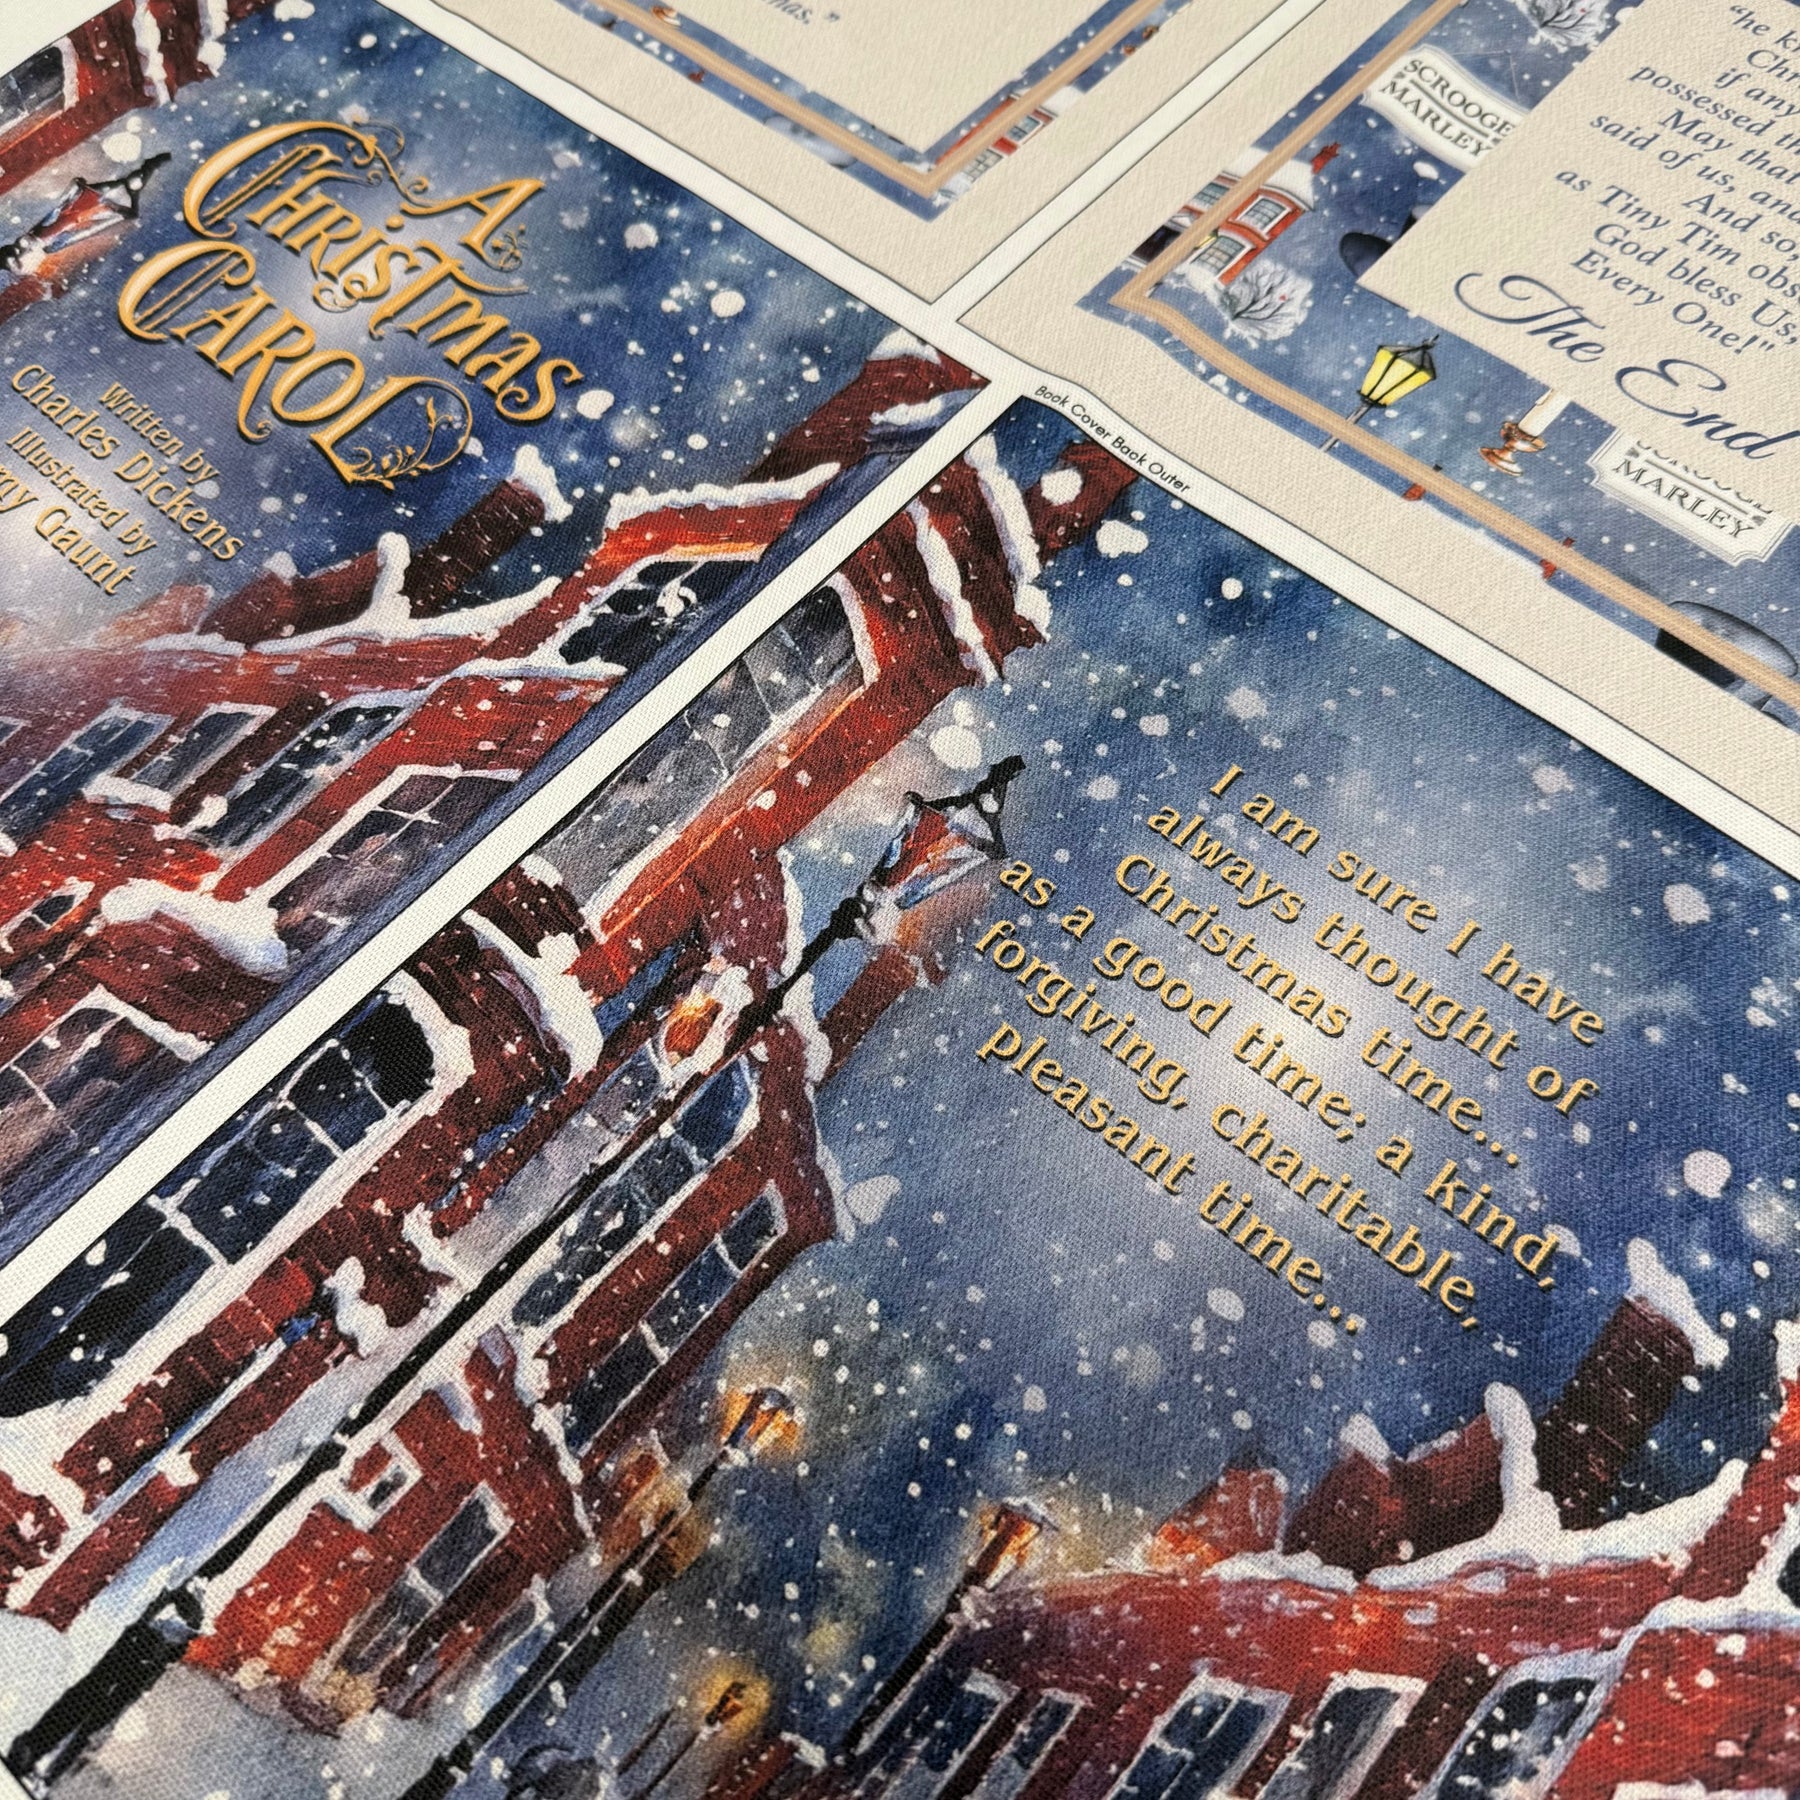 A
CHRISTMAS
CAROL
Written by
Charles Dickens
Illustrated by
Gaunt
SCROOGE
MARLEY
"he
possessed
May that
said of us, and
And so,
as Tiny Tim
God bless Us,
Every One!"
The End
MARLEY
Book Cover Back Outer
I am sure I have
always thought of
Christmas time...
as a good time; a kind,
forgiving, charitable,
pleasant time...